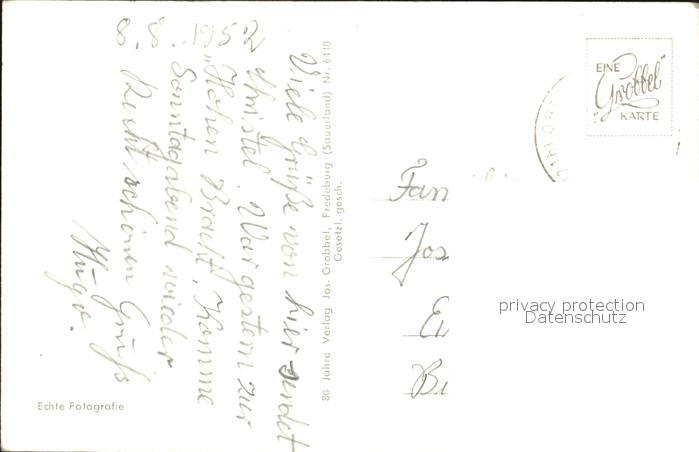 8. 8. 1952
Viele Grüße von hier sendet
Christel. War gestern zur
„Hohen Bracht". Komme
Sonntagabend wieder
Recht schönen Gruß
Hugo.
80 Jahre Verlag Jos. Grobbel, Fredeburg (Sauerland) Nr. 6110
Gesetzl. gesch.
Echte Fotografie
EINE
„Grobbel"
KARTE
Fam
Jos
privacy protection
Datenschutz